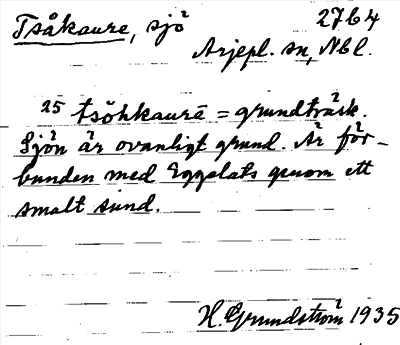 Tsåkaure, sjö 27b4
Arjepl. sn, Nbl.
25 tsåhkaurē = grundträsk.
Sjön är ovanligt grund. Är för-
bunden med Eggelats genom ett
smalt sund.
H. Grundström 1935